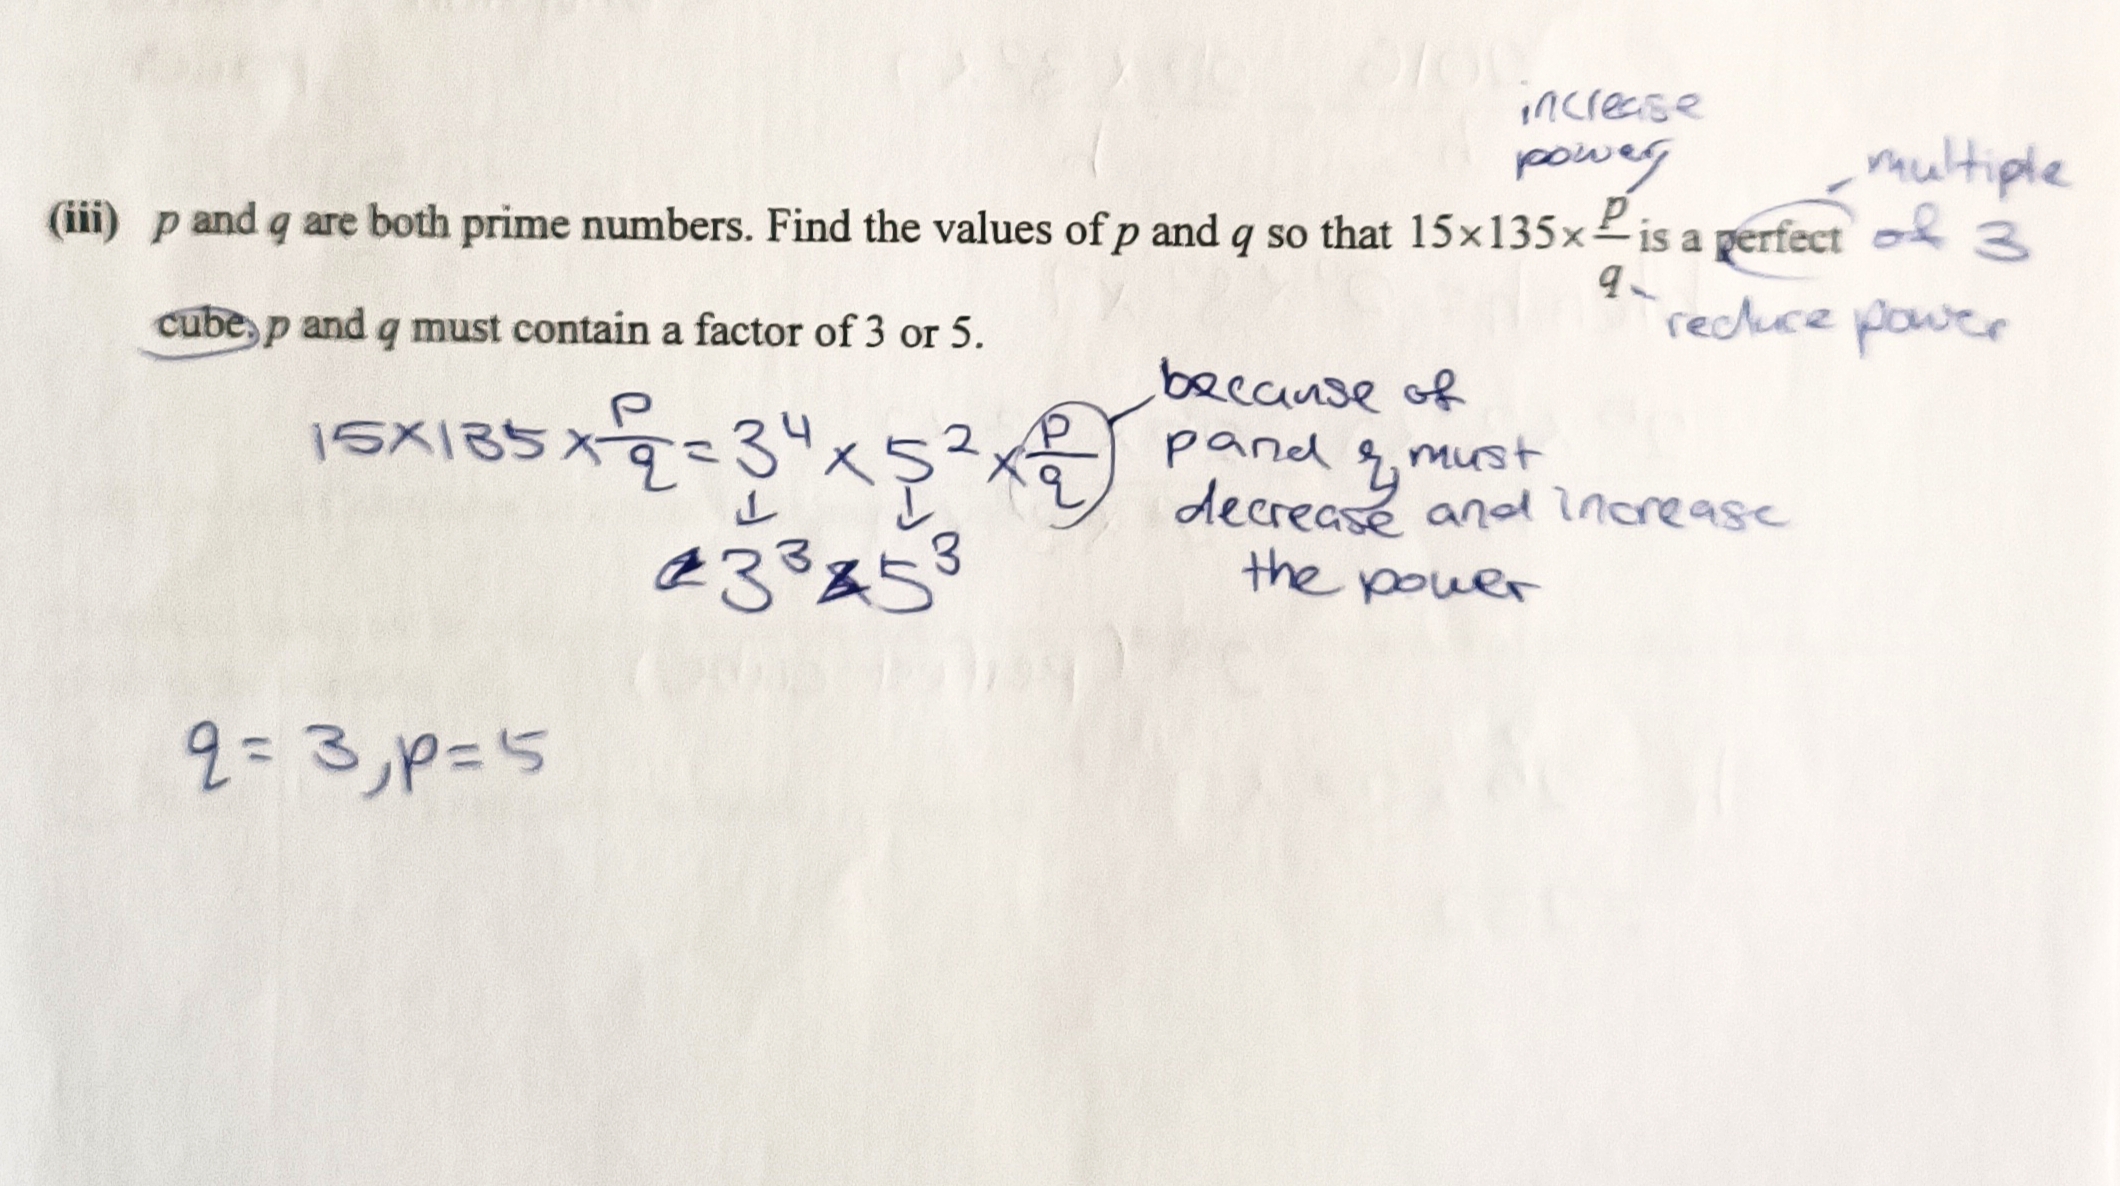 increase
power
multiple
of 3
(iii) p and q are both prime numbers. Find the values of p and q so that 15×135×p/q is a perfect
reduce power
cube, p and q must contain a factor of 3 or 5.
15×135×p/q=3⁴×5²×p/q
↓ ↓
3³×5³
because of
p and q must
decrease and increase
the power
q=3,p=5